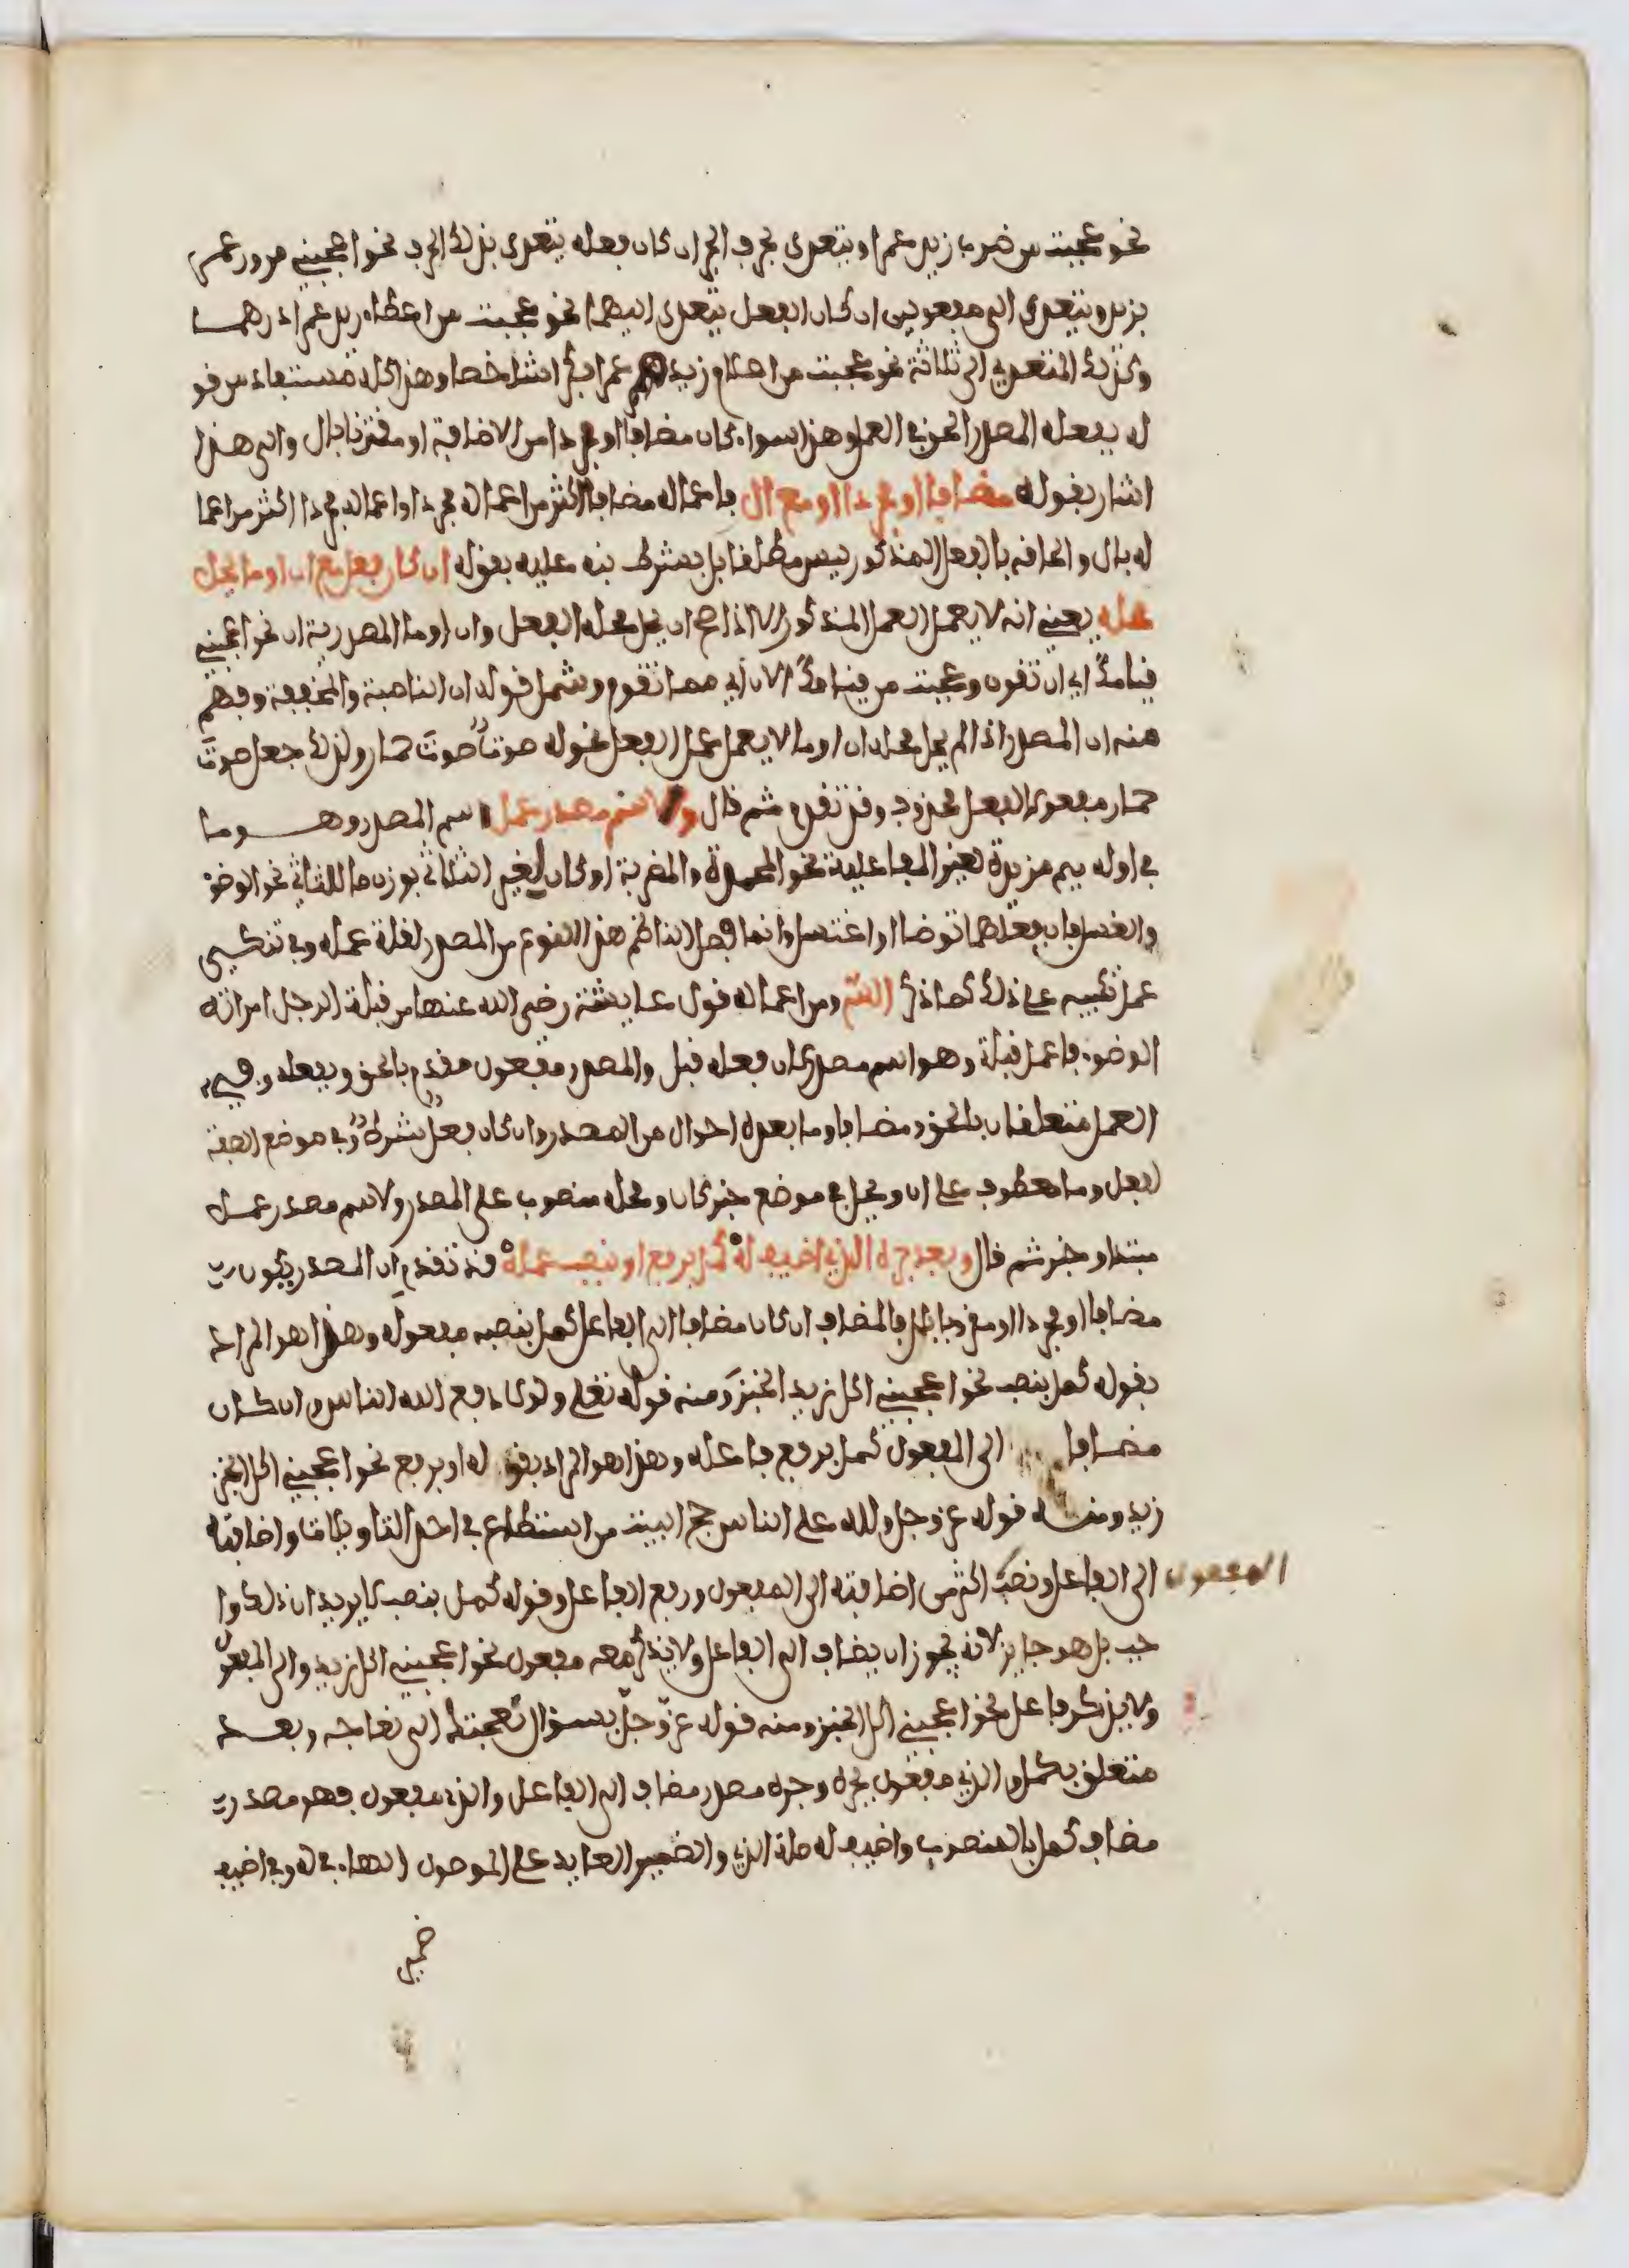 نحو عجبت من ضرب زيد عمرا ويتعدى بحرف الجر ان كان فعله يتعدى بذلك الحرف نحو اعجبني مرور عمرو
بزيد ويتعدى الى مفعولين ان كان الفعل يتعدى اليهما نحو عجبت من اعطاء زيد عمرا درهما
وكذلك المتعدي الى ثلاثة نحو عجبت من اعلام زيد عمرا بكرا شاخصا وهذا كله مستفاد من قو
له بفعله المصدر الحق في العمل وهذا سواء كان مضافا او مجردا من الاضافة او مقترنا بال والى هذا
اشار بقوله مضافا او مجردا او مع ال فاعماله مضافا اكثر من اعماله مجردا واعماله مجردا اكثر من اعما
له بال والحاقه بالفعل المذكور ليس مطلقا بل بشرط نبه عليه بقوله ان كان فعل مع ان او ما يحل
محله يعني انه لا يعمل العمل المذكور الا اذا صح ان يحل محله الفعل وان او ما المصدرية ان نحو اعجبني
قيامك اي ان تقوم وعجبت من قيامك الان اي مما تقوم وشمل قوله ان الناصبة والمخففة وفهم
منه ان المصدر اذا لم يحل محله ان او ما لا يعمل عمل الفعل نحو له صوت صوت حمار ولذلك جعل صوت
حمار مفعولا لفعل محذوف وقد تقدم ثم قال ولاسم مصدر عمل اسم المصدر وهو ما
في اوله ميم مزيدة لغير المفاعلة نحو المحمدة والمضربة او كان لغير الثلاثي بوزن ما للثلاثي نحو الوضوء
والغسل فان فعلهما توضا او اغتسل وانما فصل الناظم هذا النوع من المصدر لقلة عمله وفي تنكير
عمل تنبيه على ذلك كما ذكر الشم ومن اعماله قول عايشة رضي الله عنها من قبلة الرجل امراته
الوضوء فاعمل قبلة وهو اسم مصدر كان فعله قبل والمصدر مفعول مقدم بالحق وبفعله وفي
العمل متعلقان بالحق ومضافا وما بعده احوال من المصدر وان كان فعل شرط وفي موضع الصفة
لفعل وما معطوف على ان ويحل في موضع خبر كان ومحله منصوب على المصدر ولاسم مصدر عمل
مبتدا وخبر ثم قال وبعد جره الذي اضيف له كمل برفع او بنصب عمله قد تقدم ان المصدر يكون
مضافا او مجردا او مقرونا بال فالمضاف ان كان مضافا الى الفاعل كمل بنصبه مفعوله وهذا هو المراد
بقوله كمل بنصب نحو اعجبني اكل زيد الخبز ومنه قوله تعلى ولولا دفع الله الناس وان كان
مضافا الى المفعول كمل برفع فاعله وهذا هو المراد بقو له او برفع نحو اعجبني اكل الخبز
زيد ومنه قوله عز وجل ولله على الناس حج البيت من استطاع في احد التاويلات واضافته
الى الفاعل ونصب المفعول اكثر من اضافته الى المفعول ورفع الفاعل وقوله كمل بنصب لا يريد ان ذلك وا
جب بل هو جايز لانه يجوز ان يضاف الى الفاعل ولا يذكر معه مفعول نحو اعجبني اكل زيد والى المفعول
ولا يذكر فاعل نحو اعجبني اكل الخبز ومنه قوله عز وجل بسؤال نعجتك الى نعاجه وبعد
متعلق بكمل والذي مفعول بجره وجره مصدر مضاف الى الفاعل والذي مفعول فهو مصدر
مضاف كمل بالمنصوب واضيف له صلة الذي والضمير العايد على الموصول الهاء في له وفي اضيف
ضمير